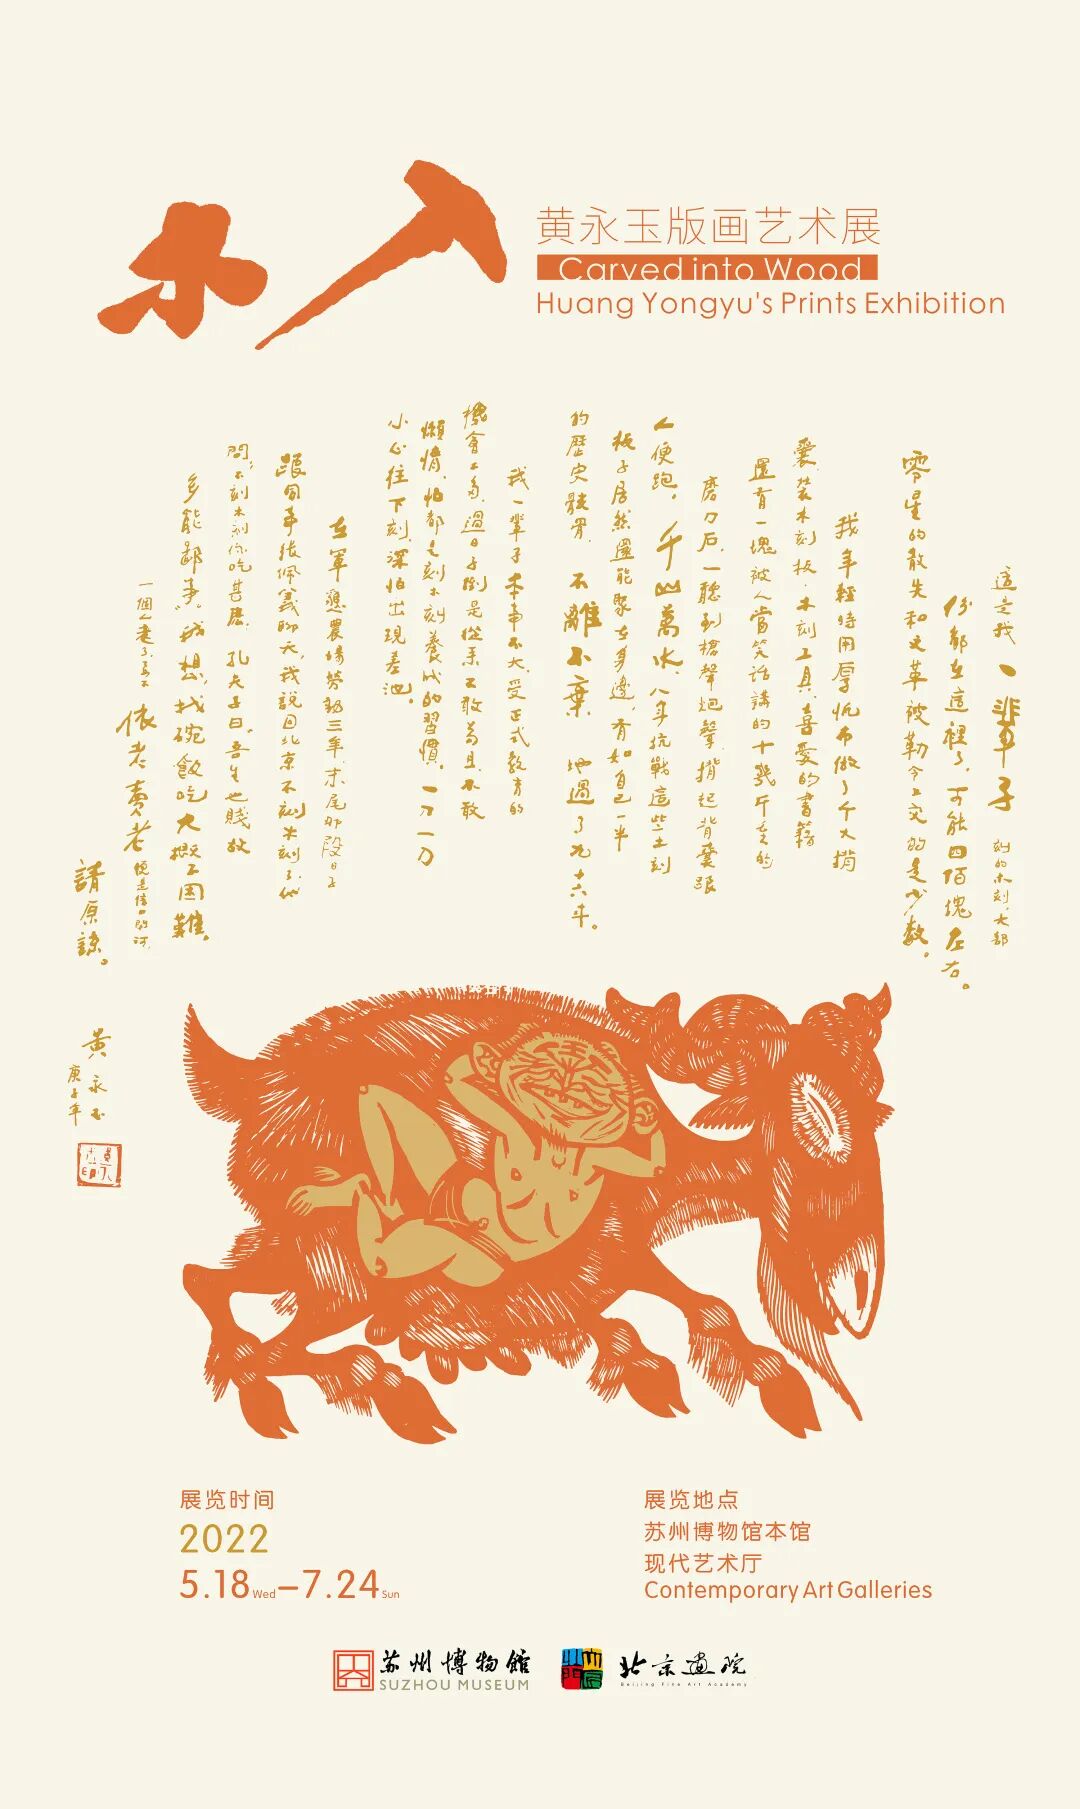 入木
黄永玉版画艺术展
Carved into Wood
Huang Yongyu's Prints Exhibition
這是我一輩子刻的木刻,大部
份都在這裡了,可能四佰塊左右。
零星的散失和文革被勒令上交的是少数。
我年輕時用厚帆布做了个大揹
囊,装木刻板,木刻工具,喜愛的書籍
還有一塊被人當笑話講的十幾斤重的
磨刀石,一聽到槍聲炮聲,揹起背囊跟
人便跑,千山萬水,八年抗戰這些木刻
板子居然還能聚在身邊,有如自己一半
的歷史骸骨,不離不棄地過了九十六年。
我一輩子本事不大,受正式教育的
機會不多,過日子倒是從来不敢苟且,不敢
懶惰,怕都是刻木刻養成的習慣,一刀一刀
小心往下刻,深怕出現差池。
在軍墾農場勞動三年,末尾那段日子
跟同事張佩義聊天,我說回北京不刻木刻了,他
問:不刻木刻你吃甚麽,孔夫子曰"吾生也賤,故
多能鄙事"我想,找碗飯吃大概不困難。
一個老
依老賣老便是信口開河,
請原諒。
黄永玉
庚子年
展览时间
2022
5.18 Wed–7.24 Sun
展览地点
苏州博物馆本馆
现代艺术厅
Contemporary Art Galleries
苏州博物館
SUZHOU MUSEUM
北京画院
Beijing Fine Art Academy